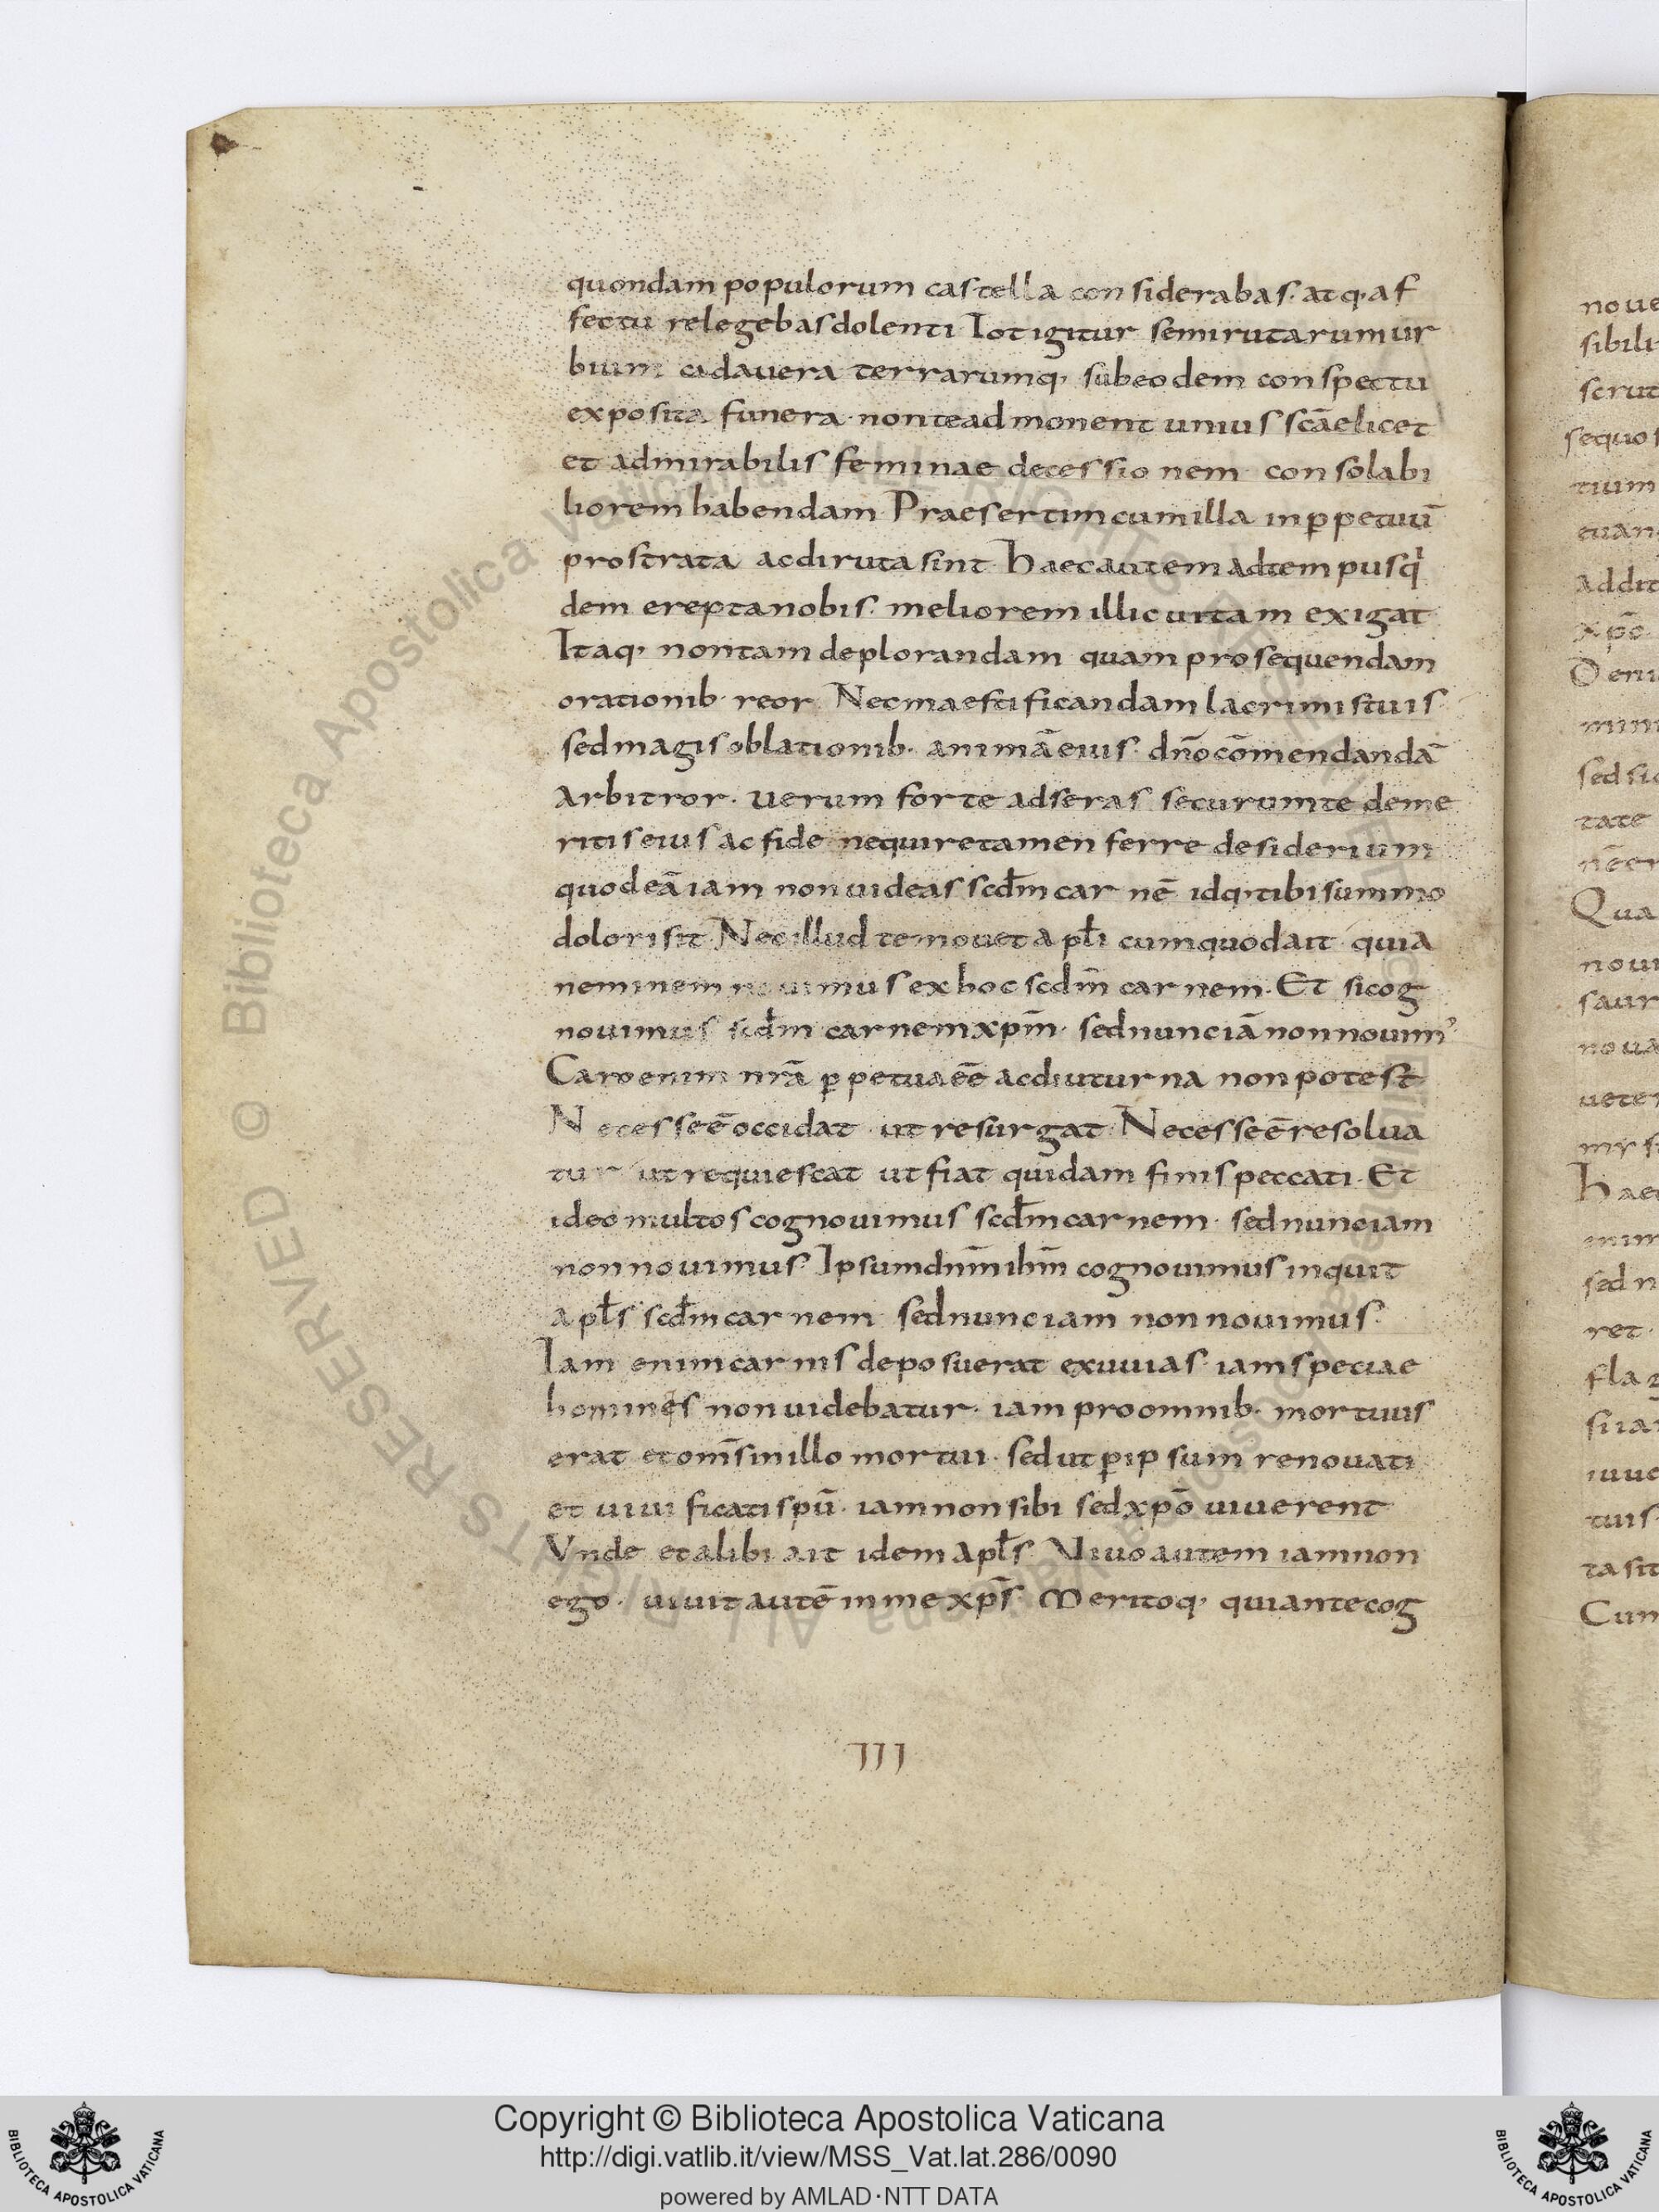 quondam populorum castella considerabas· atq, af
fectu relegebas dolenti Tot igitur semirutarum ur
bium cadauera terrarumq, sub eodem conspectu
exposita funera· non te admonent unius scāe licet
et admirabilis feminae decessionem· consolabi
liorem habendam· Praesertim cum illa in ꝑpetuū
prostrata ac diruta sint· Haec autem ad tempus qi
dem erepta nobis· meliorem illic uitam exigat
Itaq, non tam deplorandam quam prosequendam
orationib· reor Nec maestificandam lacrimis tuis·
sed magis oblationib· animā eius· dn̄o cōmendandā
Arbitror· uerum forte adseras securum te de me
ritis eius ac fide nequire tamen ferre desiderium
quod eā iam non uideas scd̄m carnē idq, tibi summo
dolori sit· Nec illud te mouet apl̄i cum quod ait quia
neminem nouimus ex hoc scdm̄ carnem· Et si cog
nouimus scd̄m carnem xpm̄· sed nunc iā non nouim'
Caro enim nrā ꝑpetua eē ac diuturna non potest
Necesse ē occidat ut resurgat· Necesse ē resolua
tur ut requiescat ut fiat quidam finis peccati· Et
ideo multos cognouimus scd̄m carnem· sed nunc iam
non nouimus· Ipsum dnm̄ ihm̄ cognouimus inquit
apl̄s scd̄m carnem sed nunc iam non nouimus·
Iam enim carnis deposuerat exuuias· iam speciae
homines non uidebatur· iam pro omnib· mortuus
erat et om̄s in illo mortui· sed ut ꝑ ipsum renouati
et uiuificati spū· iam non sibi sed xpō uiuerent
Vnde et alibi ait idem apl̄s· Viuo autem iam non
ego· uiuit autē in me xps̄· Meritoq, qui ante cog
III
noue
sibili
scrut
sequos
tium
euan
addit
xpō
mini
sed sic
tate
Qua
noui
saur
noua
ueter
Hae
enim
sed n
ret·
si iam
tuis·
ta sit
Cum
© Biblioteca Apostolica Vaticana ALL RIGHTS RESERVED
Copyright © Biblioteca Apostolica Vaticana
http://digi.vatlib.it/view/MSS_Vat.lat.286/0090
powered by AMLAD·NTT DATA
BIBLIOTECA APOSTOLICA VATICANA
BIBLIOTECA APOSTOLICA VATICANA